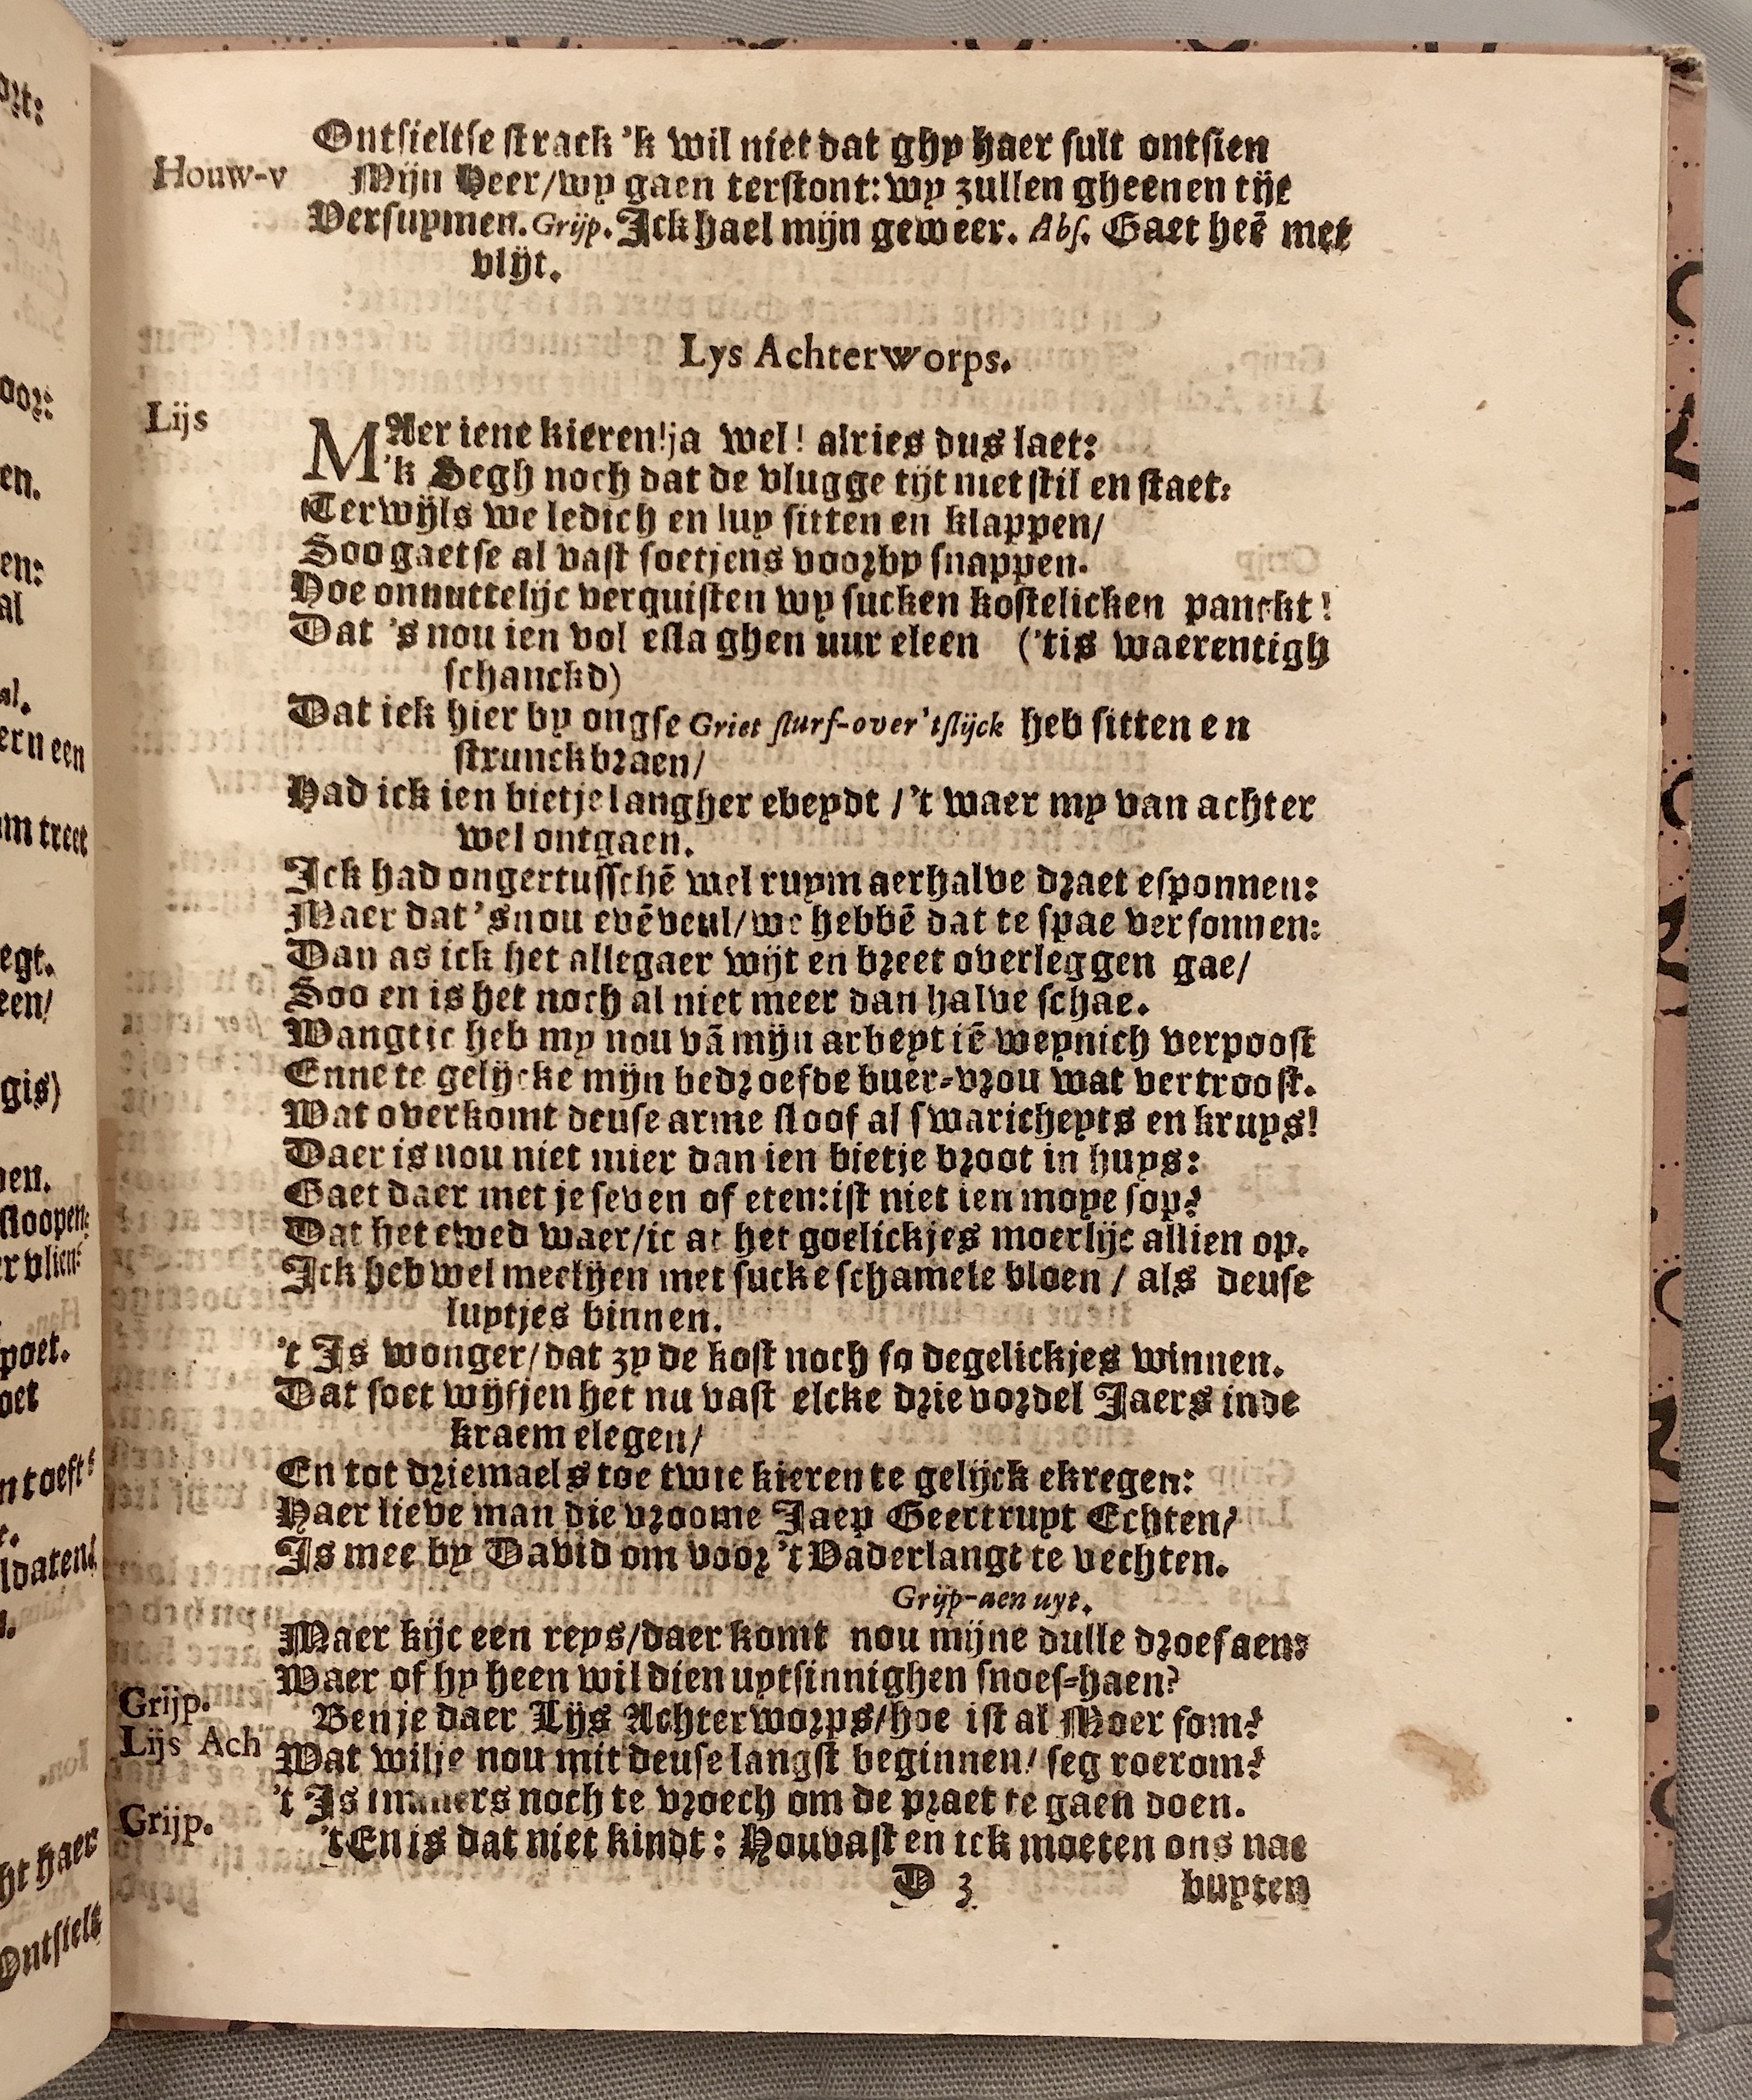 Ontsieltse strack 'k wil niet dat ghy haer sult ontsien
Houw-v Mijn Heer/wy gaen terstont: wy zullen gheenen tijt
Versuymen. Grijp. Ick hael mijn geweer. Abs. Gaet heẽ met
vlijt.
Lys Achterworps.
Lijs MAer iene kieren!ja wel! alries dus laet:
'k Segh noch dat de vlugge tijt niet stil en staet:
Terwijls we ledich en luy sitten en klappen/
Soo gaetse al vast soetjens voorby snappen.
Hoe onnuttelijc verquisten wy sucken kostelicken panckt!
Dat 's nou ien vol esla ghen uur eleen ('tis waerentigh
schanckd)
Dat iek hier by ongse Griet slurf-over'tslijck heb sitten en
strunckbraen/
Had ick ien bietje langher ebeydt /'t waer my van achter
wel ontgaen.
Ick had ongertusschẽ wel ruym aerhalve draet esponnen:
Maer dat 's nou evẽveul/we hebbẽ dat te spae versonnen:
Dan as ick het allegaer wijt en breet overleggen gae/
Soo en is het noch al niet meer dan halve schae.
Wangt ic heb my nou vã mijn arbeyt iẽ weynich verpoost
Enne te gelijcke mijn bedroefde buer-vrou wat vertroost.
Wat overkomt deuse arme sloof al swaricheyts en kruys!
Daer is nou niet mier dan ien bietje broot in huys:
Gaet daer met je seven of eten: ist niet ien moye sop?
Dat het ewed waer/ic at het goelickjes moerlijc allien op.
Ick heb wel meelijen met sucke schamele bloen / als deuse
luytjes binnen.
't Is wonger/dat zy de kost noch so degelickjes winnen.
Dat soet wijfjen het nu vast elcke drie vordel Jaers inde
kraem elegen/
En tot driemaels toe twie kieren te gelijck ekregen:
Haer lieve man die vroome Jaep Geertruyt Echten/
Is mee by David om voor 't Vaderlangt te vechten.
Grijp-aen uyt.
Maer kijc een reys/daer komt nou mijne dulle droes aen:
Waer of hy heen wil dien uytsinnighen snoes-haen?
Grijp. Ben je daer Lijs Achterworps/hoe ist al Moer som?
Lijs Ach Wat wilje nou mit deuse langst beginnen/ seg roerom?
't Is immers noch te vroech om de praet te gaen doen.
Grijp. 't En is dat niet kindt: Houvast en ick moeten ons nae
D 3 buyten